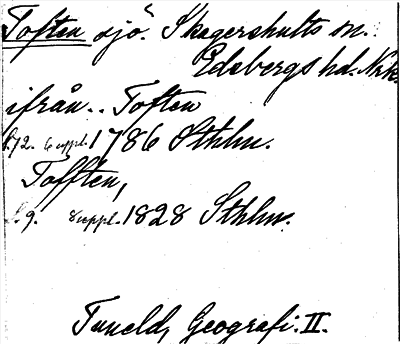 Toften sjö. Skagershults sn.
Edsbergs hd. Nrk.
ifrån.. Toften
s. 72. 6 uppl. 1786 Sthlm.
Tofften,
s. 9. 8 uppl. 1828 Sthlm.
Tuneld, Geografi. II.